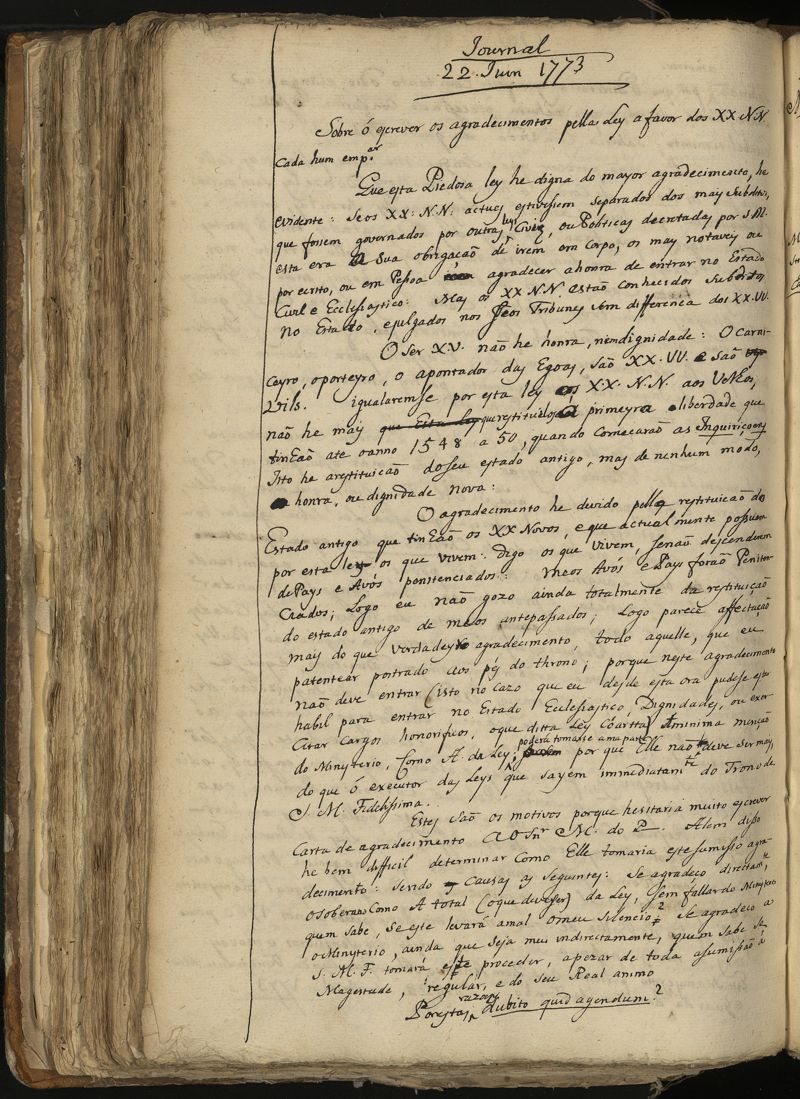 Journal
22. Juin 1773
Sobre ó escrever os agradecimentos pella Ley a favor dos XX. N.N
Cada hum emp.ar
Que esta Piedosa ley he digna do mayor agradecimento, he
evidente: Se os XX: N.N: actues estivessem separados dos mays Subditos,
que fossem governados por outras leys Civis, ou Politicas decretadas por S.M.
esta era a Sua obrigação d'irem em Corpo, os mays notaveis ou
por escrito, ou em Pessoa agradecer a honra de entrar no Estado
Civil e Ecclesiastico: Mas os XX N.N. estão conhecidos Subditos
no Estado, e julgados nos Seos Tribunes sem differença dos XX.VV.
O Ser XV. não he honra, nem dignidade: O Carni-
ceyro, o porteyro, o apontador das Egoas, são XX. VV. e são
Vils. igualaremse por esta ley os X.X. N.N. aos Velhos,
não he mays que Esta Ley que restituilos á primeyra liberdade que
tinhão ate o anno 1548 a 50, quando Comecarão as Inquiriçoens
Isto he a restituicão do seu estado antigo, mas de nenhum modo,
honra, ou dignidade nova:
O agradecimento he devido pella restituicão do
Estado antigo que tinhão os XX Novos, e que actualmente possuem
por esta ley os que vivem: digo os que vivem, senaõ descenderem
de Pays e Avós penitenciados: Meos Avós e Pays forão Peniten
Ciados; Logo eu não gozo ainda totalmente da restituição
do estado antigo de meos antepassados; Logo parece affectação
mays do que verdadeyro agradecimento, todo aquelle, que eu
patentear postrado aos pés do throno; porque neste agradecimento
não deve entrar (isto no Cazo que eu desde esta ora pudese estar
habil para entrar no Estado Ecclesiastico, Dignidades, ou exer
Citar Cargos honorificos, o que ditta Ley Coartta) A minima menção
do Minysterio, Como A. da Ley; poderá tomarse a ma parte por que Elle não deve ser mays,
do que ó executor das Leys que sayem immediatam.te do Trono de
S. M. Fidelissima.
Estes são os motivos porque hesitaria muito escrever
Carta de agradecimento AO Snr M. do P. Alem disso
he bem difficil determinar Como Elle tomaria este sumisso agra-
decimento: Sendo as Causas as seguintes: Se agradeço directam.te
o Soberano Como A total (o que devo fazer) da Ley, sem fallar do Minysterio
quem Sabe, Se este levará a mal o meu Silencio? Se agradeco a
o Minysterio, ainda que seja meu indirectamente, quem Sabe Se
S. M. F. tomará este proceder, apezar de toda a sumissão á
Magestade, regular, e do seu Real animo
Por estas razoens dubito quid agendum?